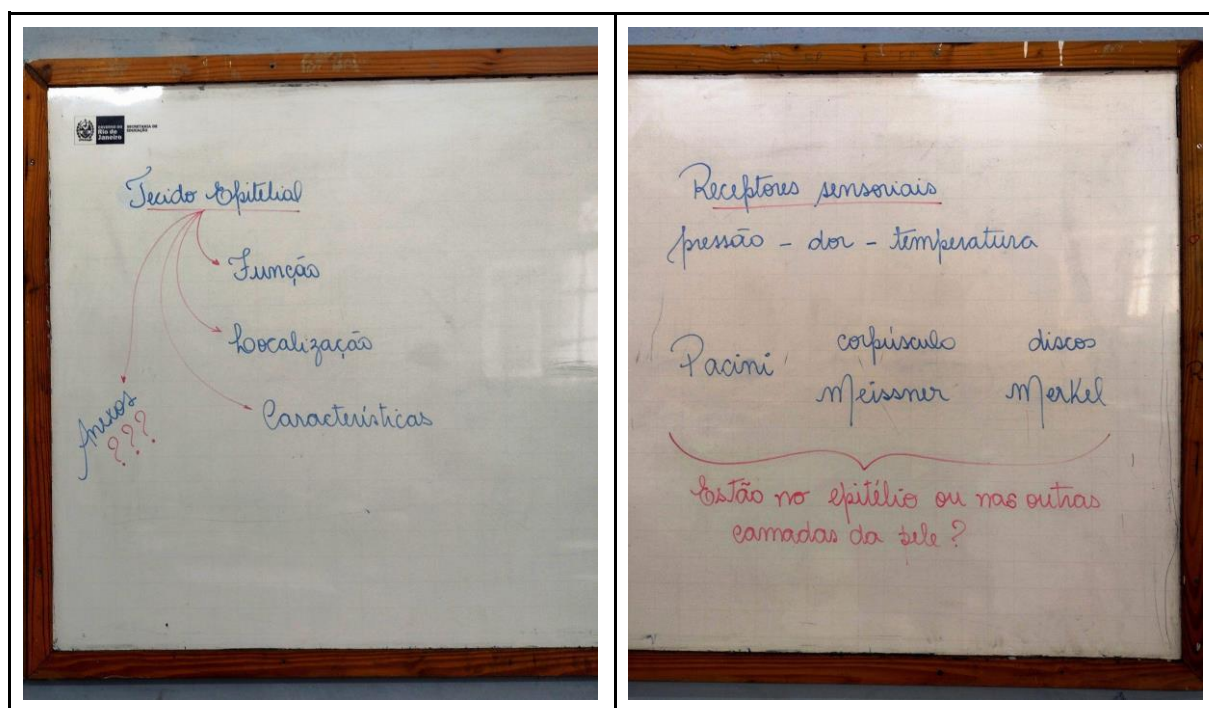 GOVERNO DO
Rio de
Janeiro
SECRETARIA DE
EDUCAÇÃO
Tecido Epitelial
Função
Localização
Características
Anexos
???
Receptores sensoriais
pressão - dor - temperatura
Pacini corpúsculo Meissner discos Merkel
Estão no epitélio ou nas outras
camadas da pele?